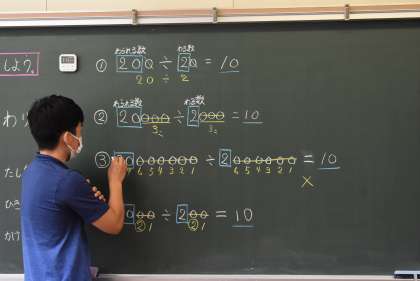 しよう。
わり
たし
ひき
かけ
わられる数 わる数
① 200 ÷ 20 = 10
20 ÷ 2
わられる数 わる数
② 20000 ÷ 2000 = 10
3こ 3こ
③ ÷ 2000000 = 10
6 5 4 3 2 1 6 5 4 3 2 1 ×
000 ÷ 200 = 10
② 1 ② 1